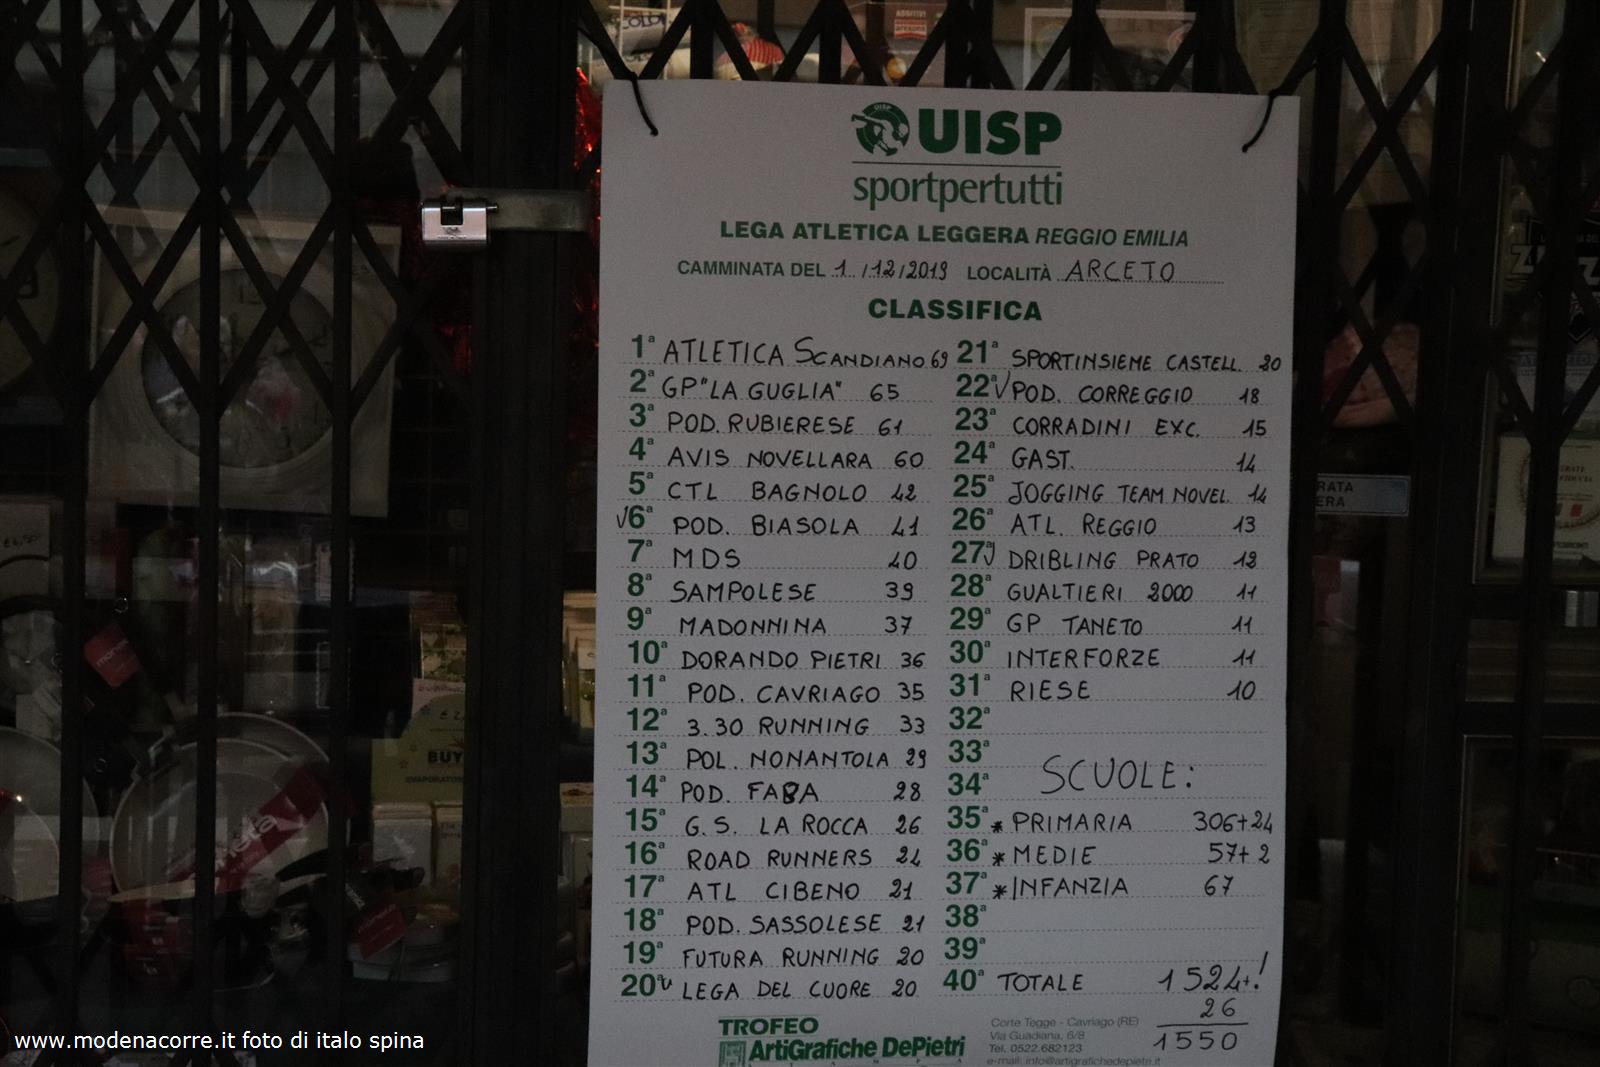 UISP
sportpertutti
LEGA ATLETICA LEGGERA REGGIO EMILIA
CAMMINATA DEL 1 /12/2019 LOCALITÀ ARCETO
CLASSIFICA
1ª ATLETICA SCANDIANO 69
2ª GP "LA GUGLIA" 65
3ª POD. RUBIERESE 61
4ª AVIS NOVELLARA 60
5ª CTL BAGNOLO 42
√6ª POD. BIASOLA 41
7ª MDS 40
8ª SAMPOLESE 39
9ª MADONNINA 37
10ª DORANDO PIETRI 36
11ª POD. CAVRIAGO 35
12ª 3.30 RUNNING 33
13ª POL. NONANTOLA 29
14ª POD. FABA 28
15ª G.S. LA ROCCA 26
16ª ROAD RUNNERS 24
17ª ATL CIBENO 21
18ª POD. SASSOLESE 21
19ª FUTURA RUNNING 20
20ª LEGA DEL CUORE 20
21ª SPORTINSIEME CASTELL. 20
22ª √ POD. CORREGGIO 18
23ª CORRADINI EXC. 15
24ª GAST. 14
25ª JOGGING TEAM NOVEL. 14
26ª ATL. REGGIO 13
27ª √ DRIBLING PRATO 12
28ª GUALTIERI 2000 11
29ª GP TANETO 11
30ª INTERFORZE 11
31ª RIESE 10
32ª
33ª
34ª SCUOLE:
35ª * PRIMARIA 306+24
36ª * MEDIE 57+2
37ª * INFANZIA 67
38ª
39ª
40ª TOTALE 1524+!
26
1550
TROFEO
ArtiGrafiche DePietri
Corte Tegge - Cavriago (RE)
Via Guadiana, 6/8
Tel. 0522.682123
e-mail: info@artigrafichedepietri.it
BUY
www.modenacorre.it foto di italo spina